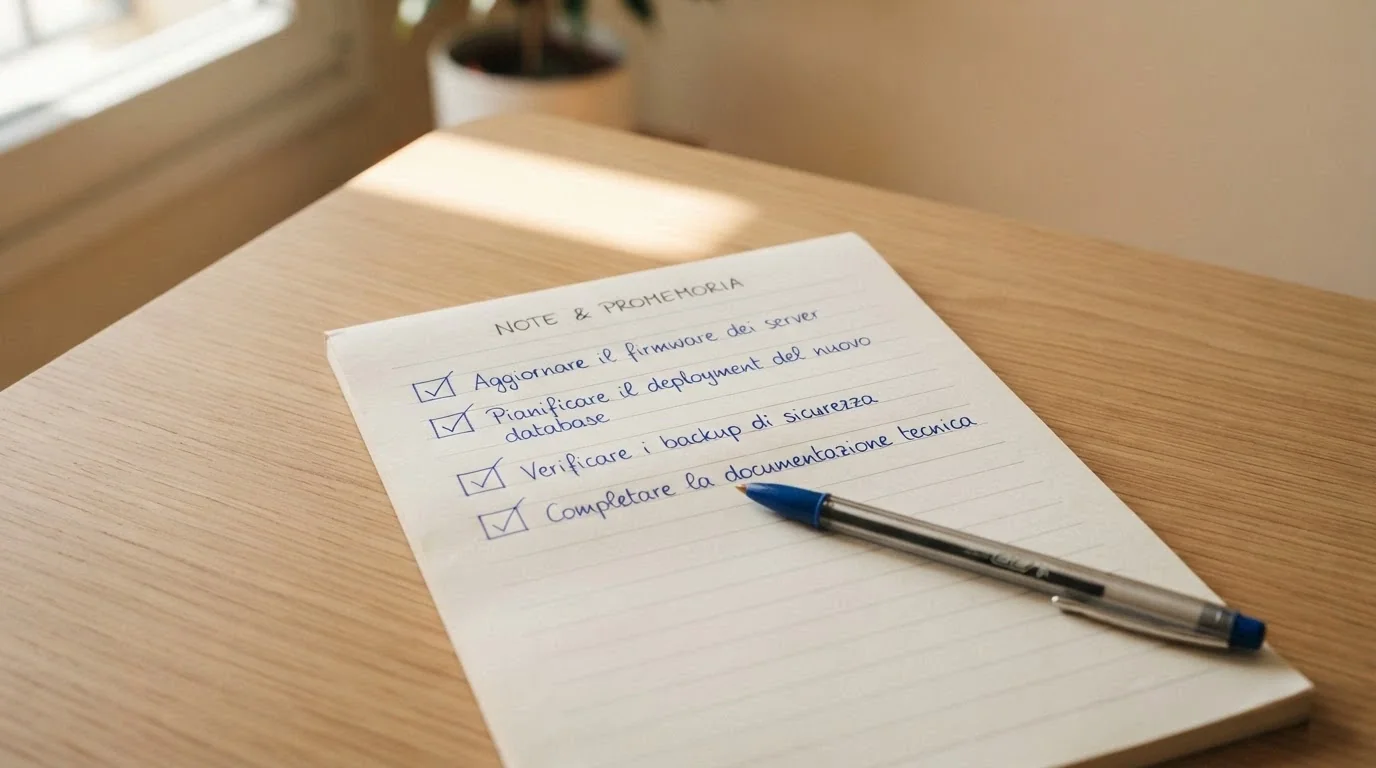 NOTE & PROMEMORIA
Aggiornare il firmware dei server
Pianificare il deployment del nuovo
database
Verificare i backup di sicurezza
Completare la documentazione tecnica